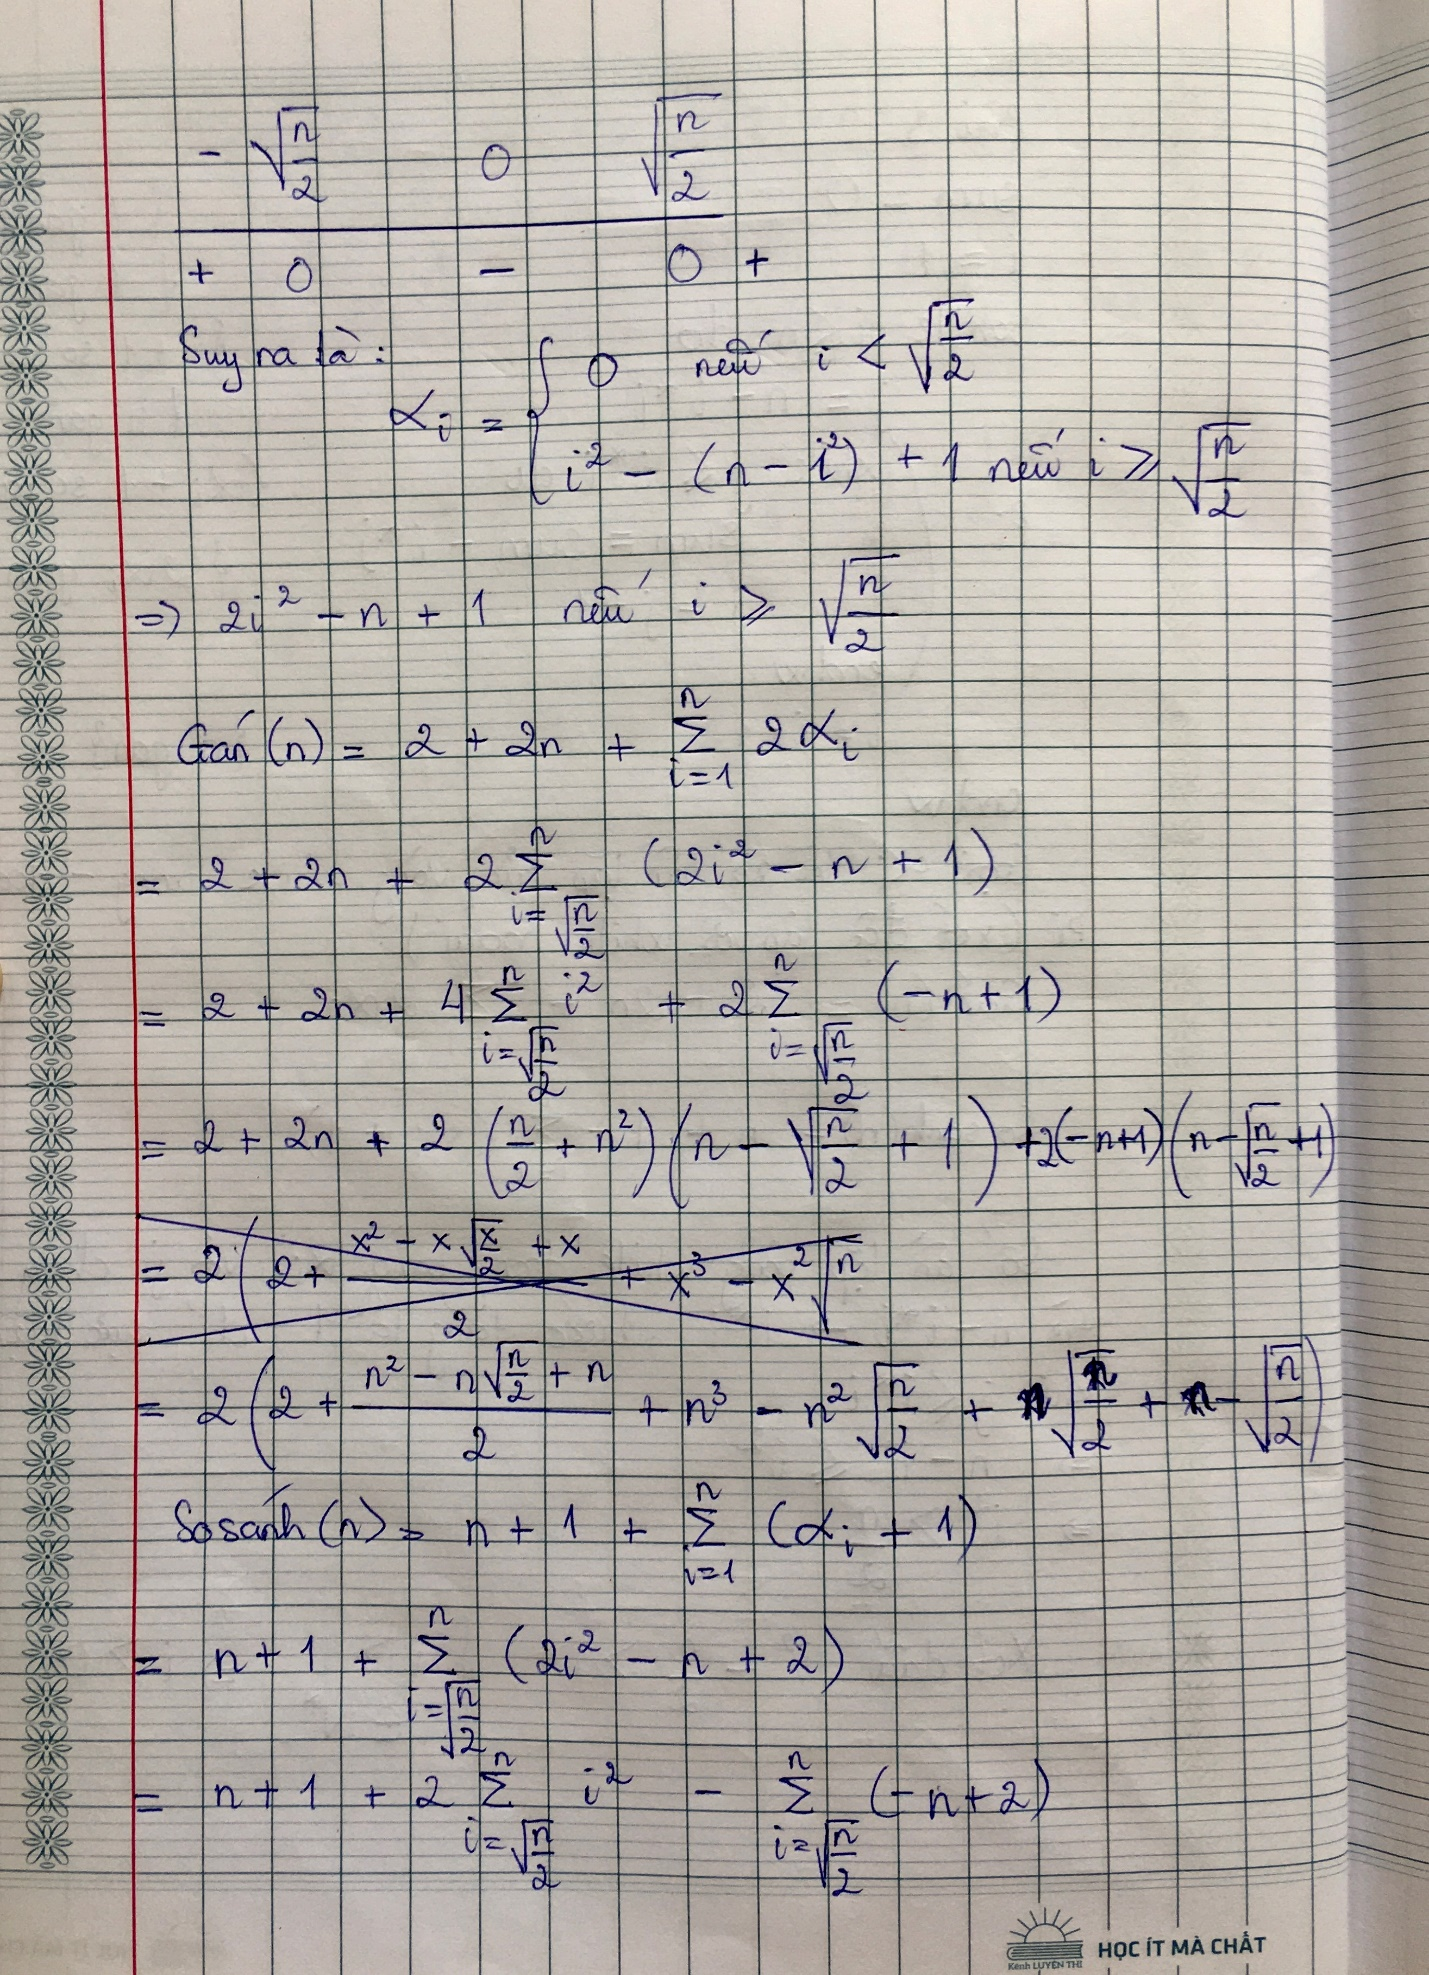 - √(n/2) 0 √(n/2)
+ 0 - 0 +
Suy ra là:
αᵢ = { 0 nếu i < √(n/2)
i² - (n - i²) + 1 nếu i ⩾ √(n/2)
=> 2i² - n + 1 nếu i ⩾ √(n/2)
Gán(n) = 2 + 2n + Σ_{i=1}^{n} 2αᵢ
= 2 + 2n + 2 Σ_{i=√(n/2)}^{n} (2i² - n + 1)
= 2 + 2n + 4 Σ_{i=√(n/2)}^{n} i² + 2 Σ_{i=√(n/2)}^{n} (-n+1)
= 2 + 2n + 2 (n/2 + n²)(n - √(n/2) + 1) + 2(-n+1)(n - √(n/2) + 1)
= 2(2 + (x² - x√(x/2) + x)/2 + x³ - x²√n
= 2(2 + (n² - n√(n/2) + n)/2 + n³ - n²√(n/2) + n√(n/2) + n - √(n/2))
Sosánh(n) = n + 1 + Σ_{i=1}^{n} (αᵢ + 1)
= n + 1 + Σ_{i=√(n/2)}^{n} (2i² - n + 2)
= n + 1 + 2 Σ_{i=√(n/2)}^{n} i² - Σ_{i=√(n/2)}^{n} (-n+2)
HỌC ÍT MÀ CHẤT
Kênh LUYỆN THI